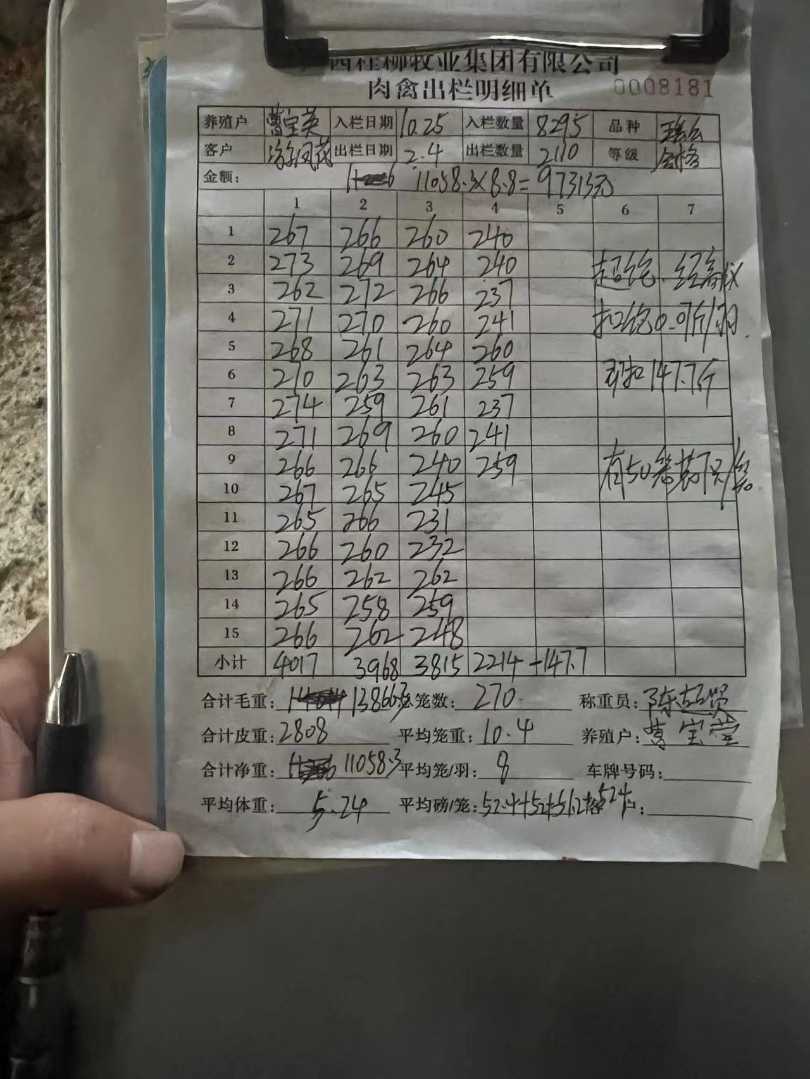 西桂柳牧业集团有限公司
肉禽出栏明细单 0008181
养殖户 曹宝英 入栏日期 10.25 入栏数量 8295 品种
客户 出栏日期 2.4 出栏数量 2110 等级 合格
金额: 11058.3×8.8=97313元
1 2 3 4 5 6 7
1 267 266 260 240
2 273 269 264 240
3 262 272 266 237
4 271 270 260 241
5 268 261 264 260
6 270 263 263 259
7 274 259 261 237
8 271 269 260 241
9 266 266 240 259
10 267 265 245
11 265 266 231
12 266 260 232
13 266 262 262
14 265 258 259
15 266 262 248
扣 0.07斤/羽.
即扣147.7斤
有50笼装7只/笼
小计 4017 3968 3815 2214 -147.7
合计毛重: 13866.3 总笼数: 270 称重员:
合计皮重: 2808 平均笼重: 10.4 养殖户: 曹宝莹
合计净重: 11058.3 平均笼/羽: 8 车牌号码:
平均体重: 5.24 平均磅/笼: 52.4+52+51.2+52.4